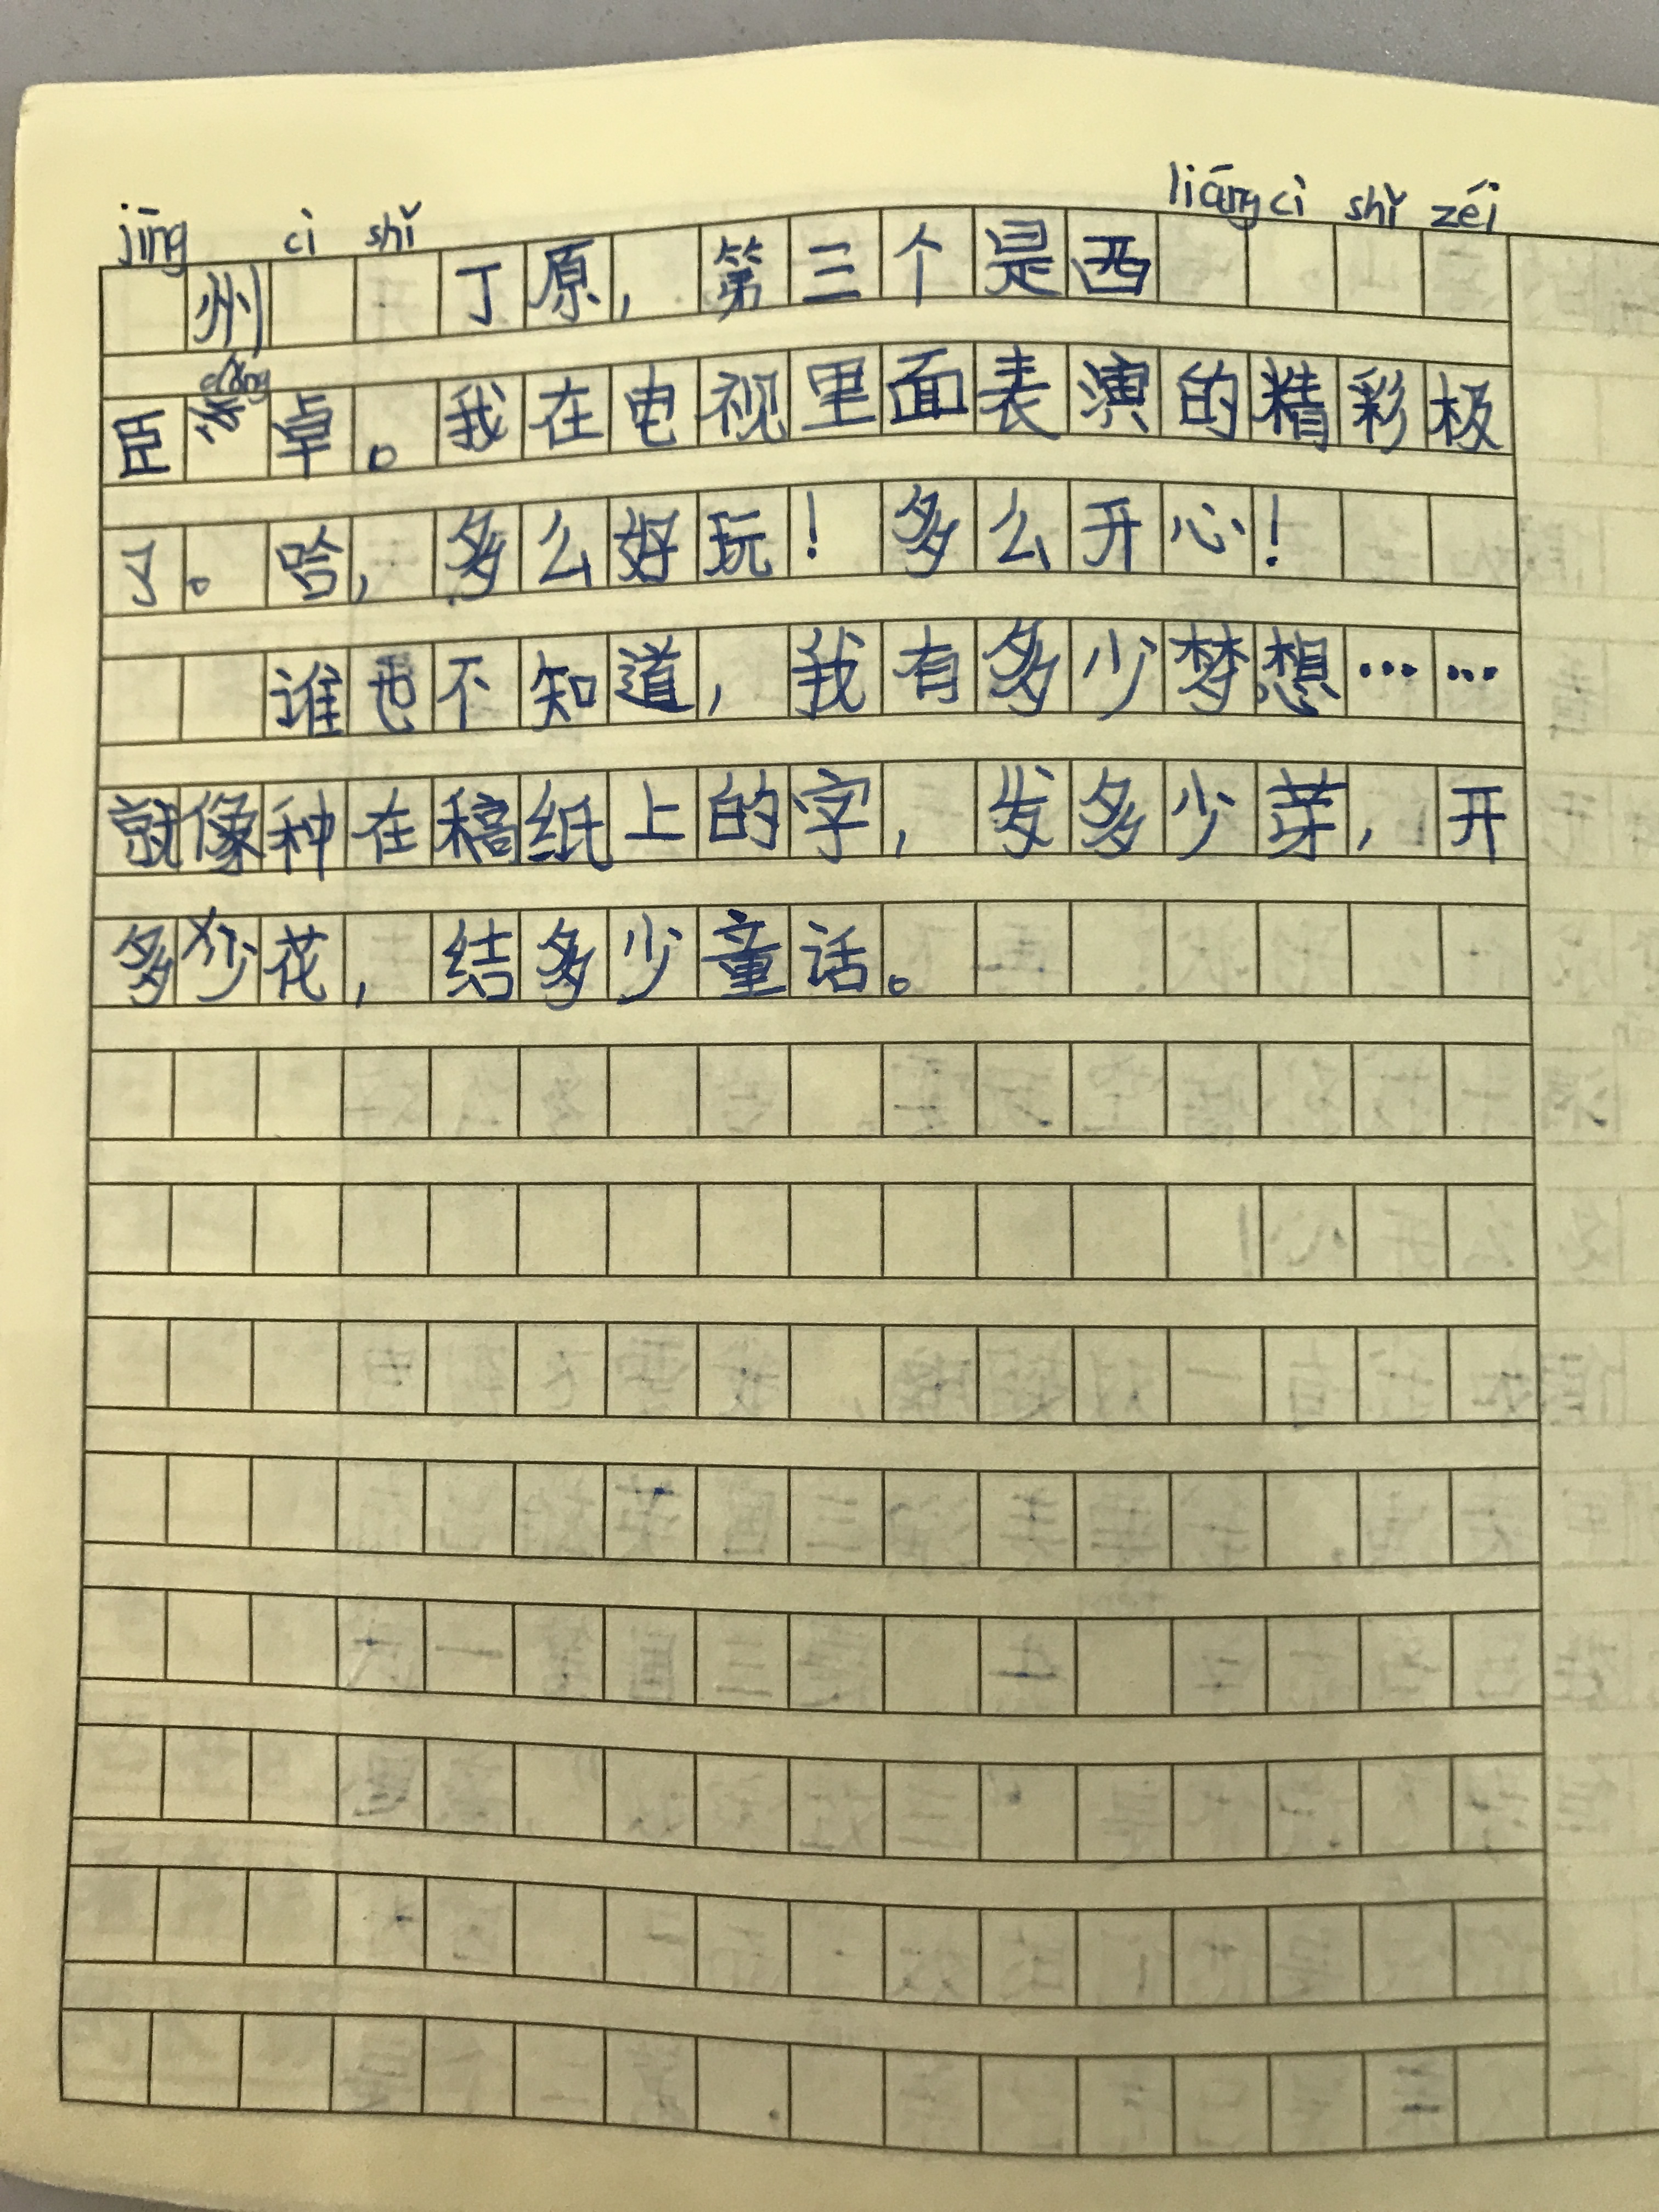 jīng cì shǐ liáng cì shǐ zéi
州 丁原，第三个是西
臣 卓。我在电视里面表演的精彩极
了。哈，多么好玩！多么开心！
谁也不知道，我有多少梦想……
就像种在稿纸上的字，发多少芽，开
多少花，结多少童话。